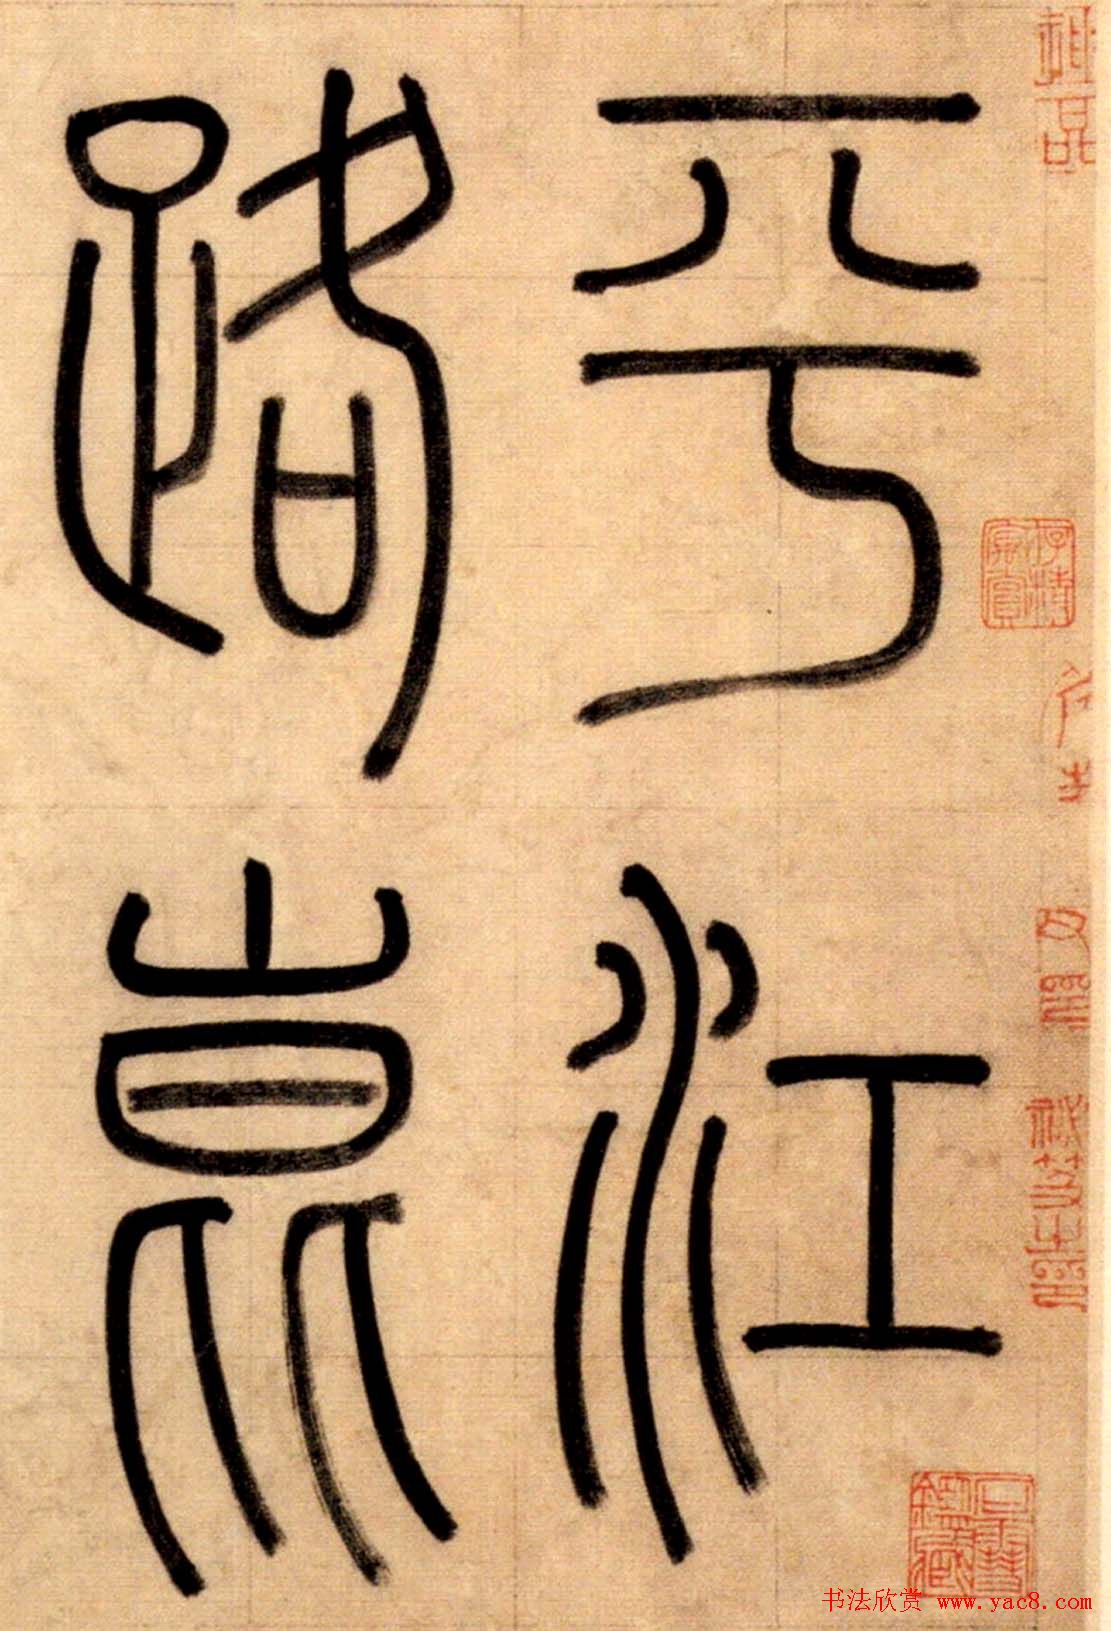 平江
路崑
书法欣赏 www.yac8.com